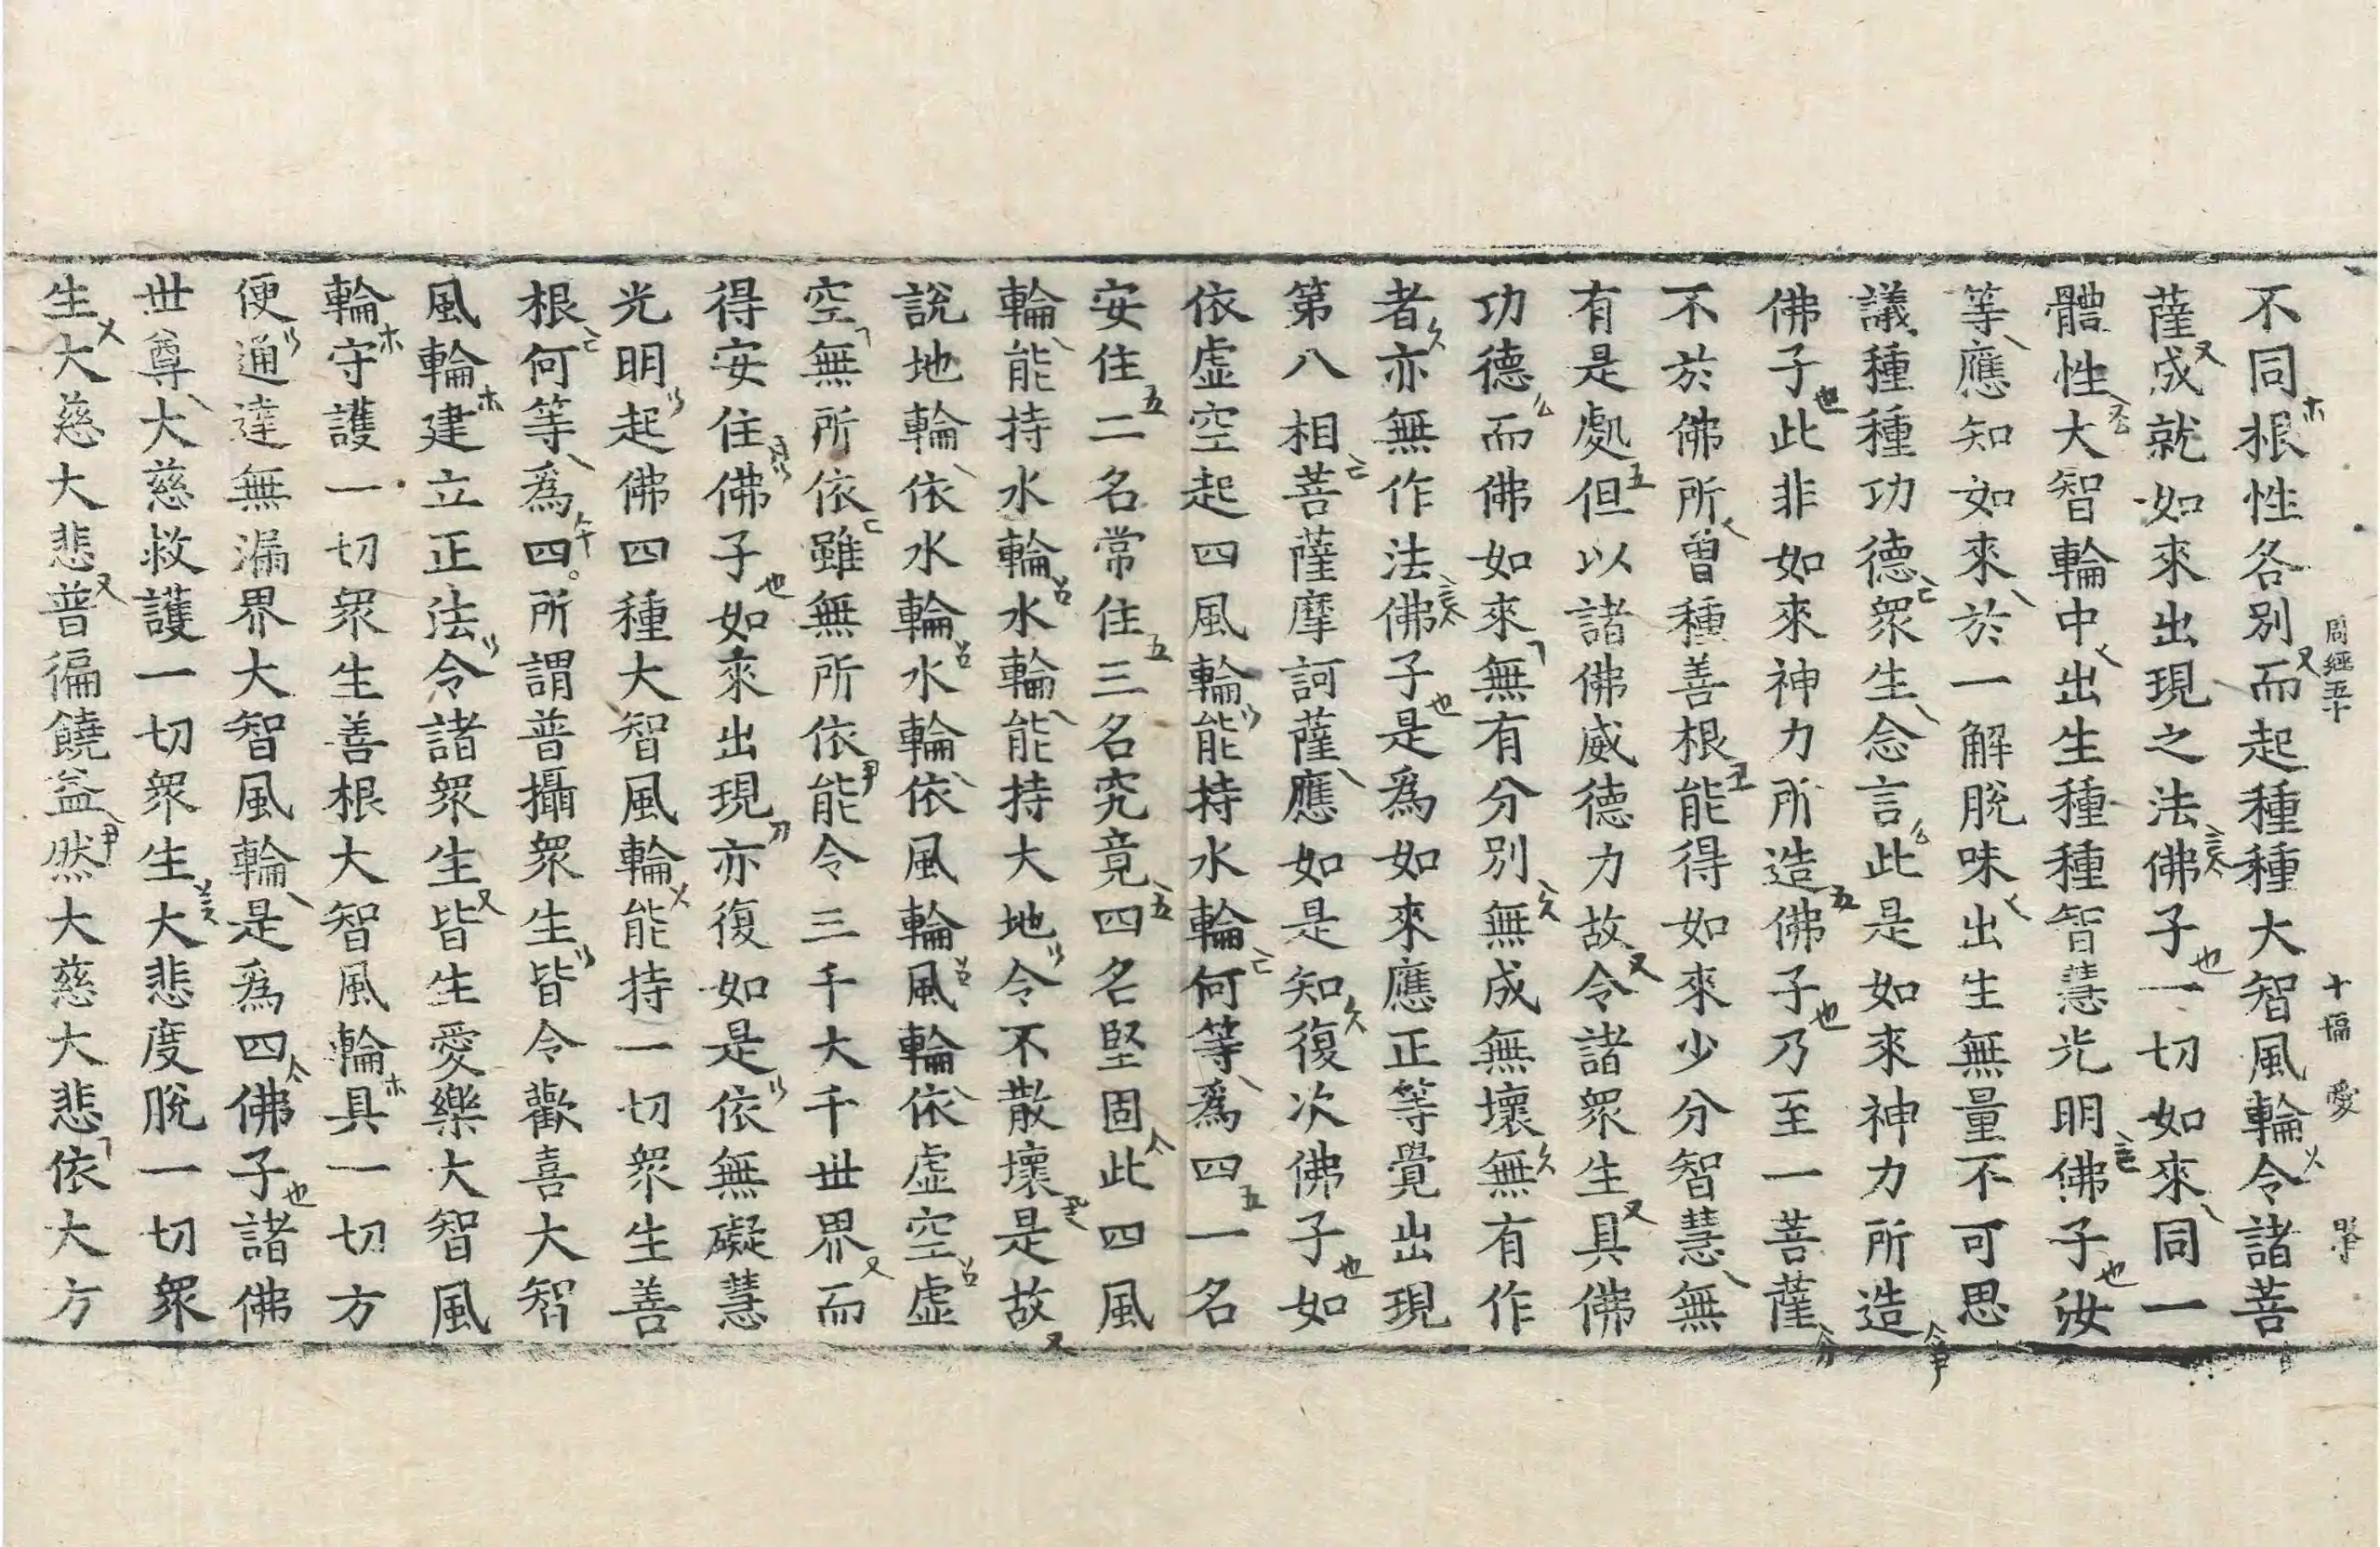 不同根性各別而起種種大智風輪令諸菩
薩成就如來出現之法佛子一切如來同一
體性大智輪中出生種種智慧光明佛子汝
等應知如來於一解脫味出生無量不可思
議種種功德衆生念言此是如來神力所造
佛子此非如來神力所造佛子乃至一菩薩
不於佛所曾種善根能得如來少分智慧無
有是處但以諸佛威德力故令諸衆生具佛
功德而佛如來無有分別無成無壞無有作
者亦無作法佛子是爲如來應正等覺出現
第八相菩薩摩訶薩應如是知復次佛子如
依虛空起四風輪能持水輪何等爲四一名
安住二名常住三名究竟四名堅固此四風
輪能持水輪水輪能持大地令不散壞是故
說地輪依水輪水輪依風輪風輪依虛空虛
空無所依雖無所依能令三千大千世界而
得安住佛子如來出現亦復如是依無礙慧
光明起佛四種大智風輪能持一切衆生善
根何等爲四所謂普攝衆生皆令歡喜大智
風輪建立正法令諸衆生皆生愛樂大智風
輪守護一切衆生善根大智風輪具一切方
便通達無漏界大智風輪是爲四佛子諸佛
世尊大慈救護一切衆生大悲度脫一切衆
生大慈大悲普徧饒益然大慈大悲依大方